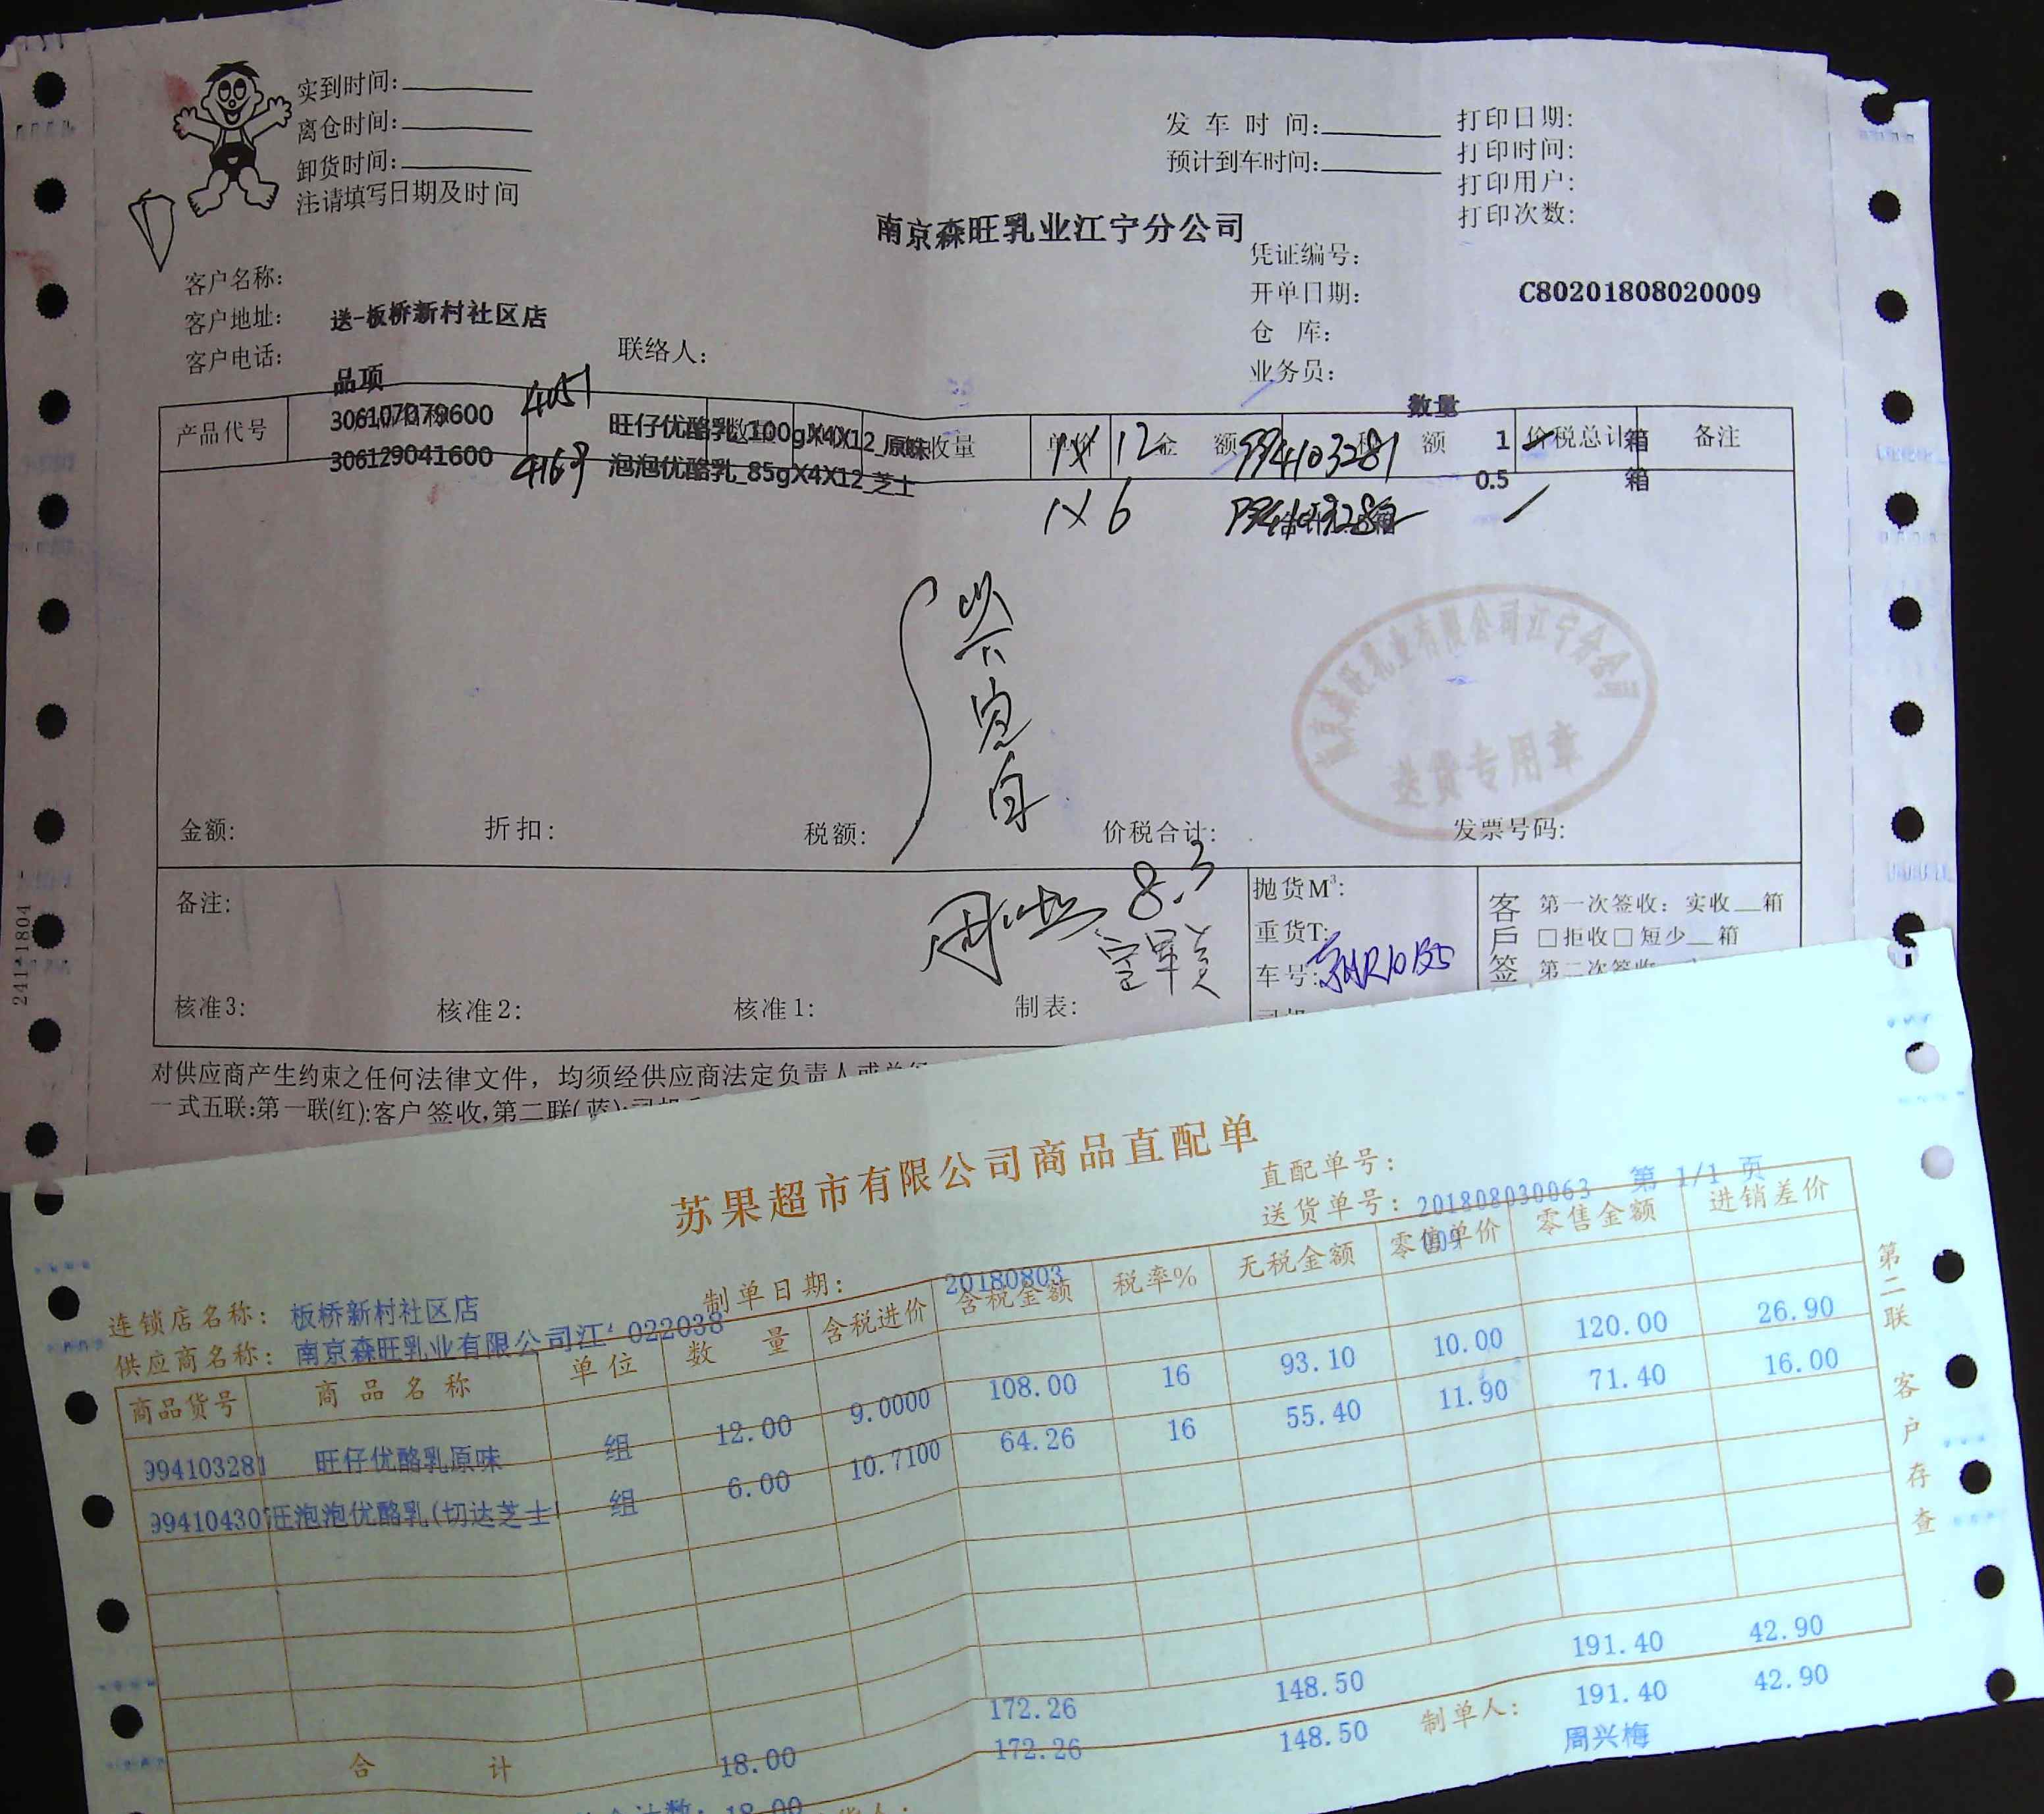 实到时间:
离仓时间:
卸货时间:
注:请填写日期及时间
发 车 时 间:
预计到车时间:
打印日期:
打印时间:
打印用户:
打印次数:
南京森旺乳业江宁分公司
凭证编号:
开单日期: C80201808020009
仓 库:
业务员:
客户名称:
客户地址: 送-板桥新村社区店
客户电话:
联络人:
品项 数量
产品代号 收量 单价 金 额 税 额 价税总计 备注
306107079600 4051 旺仔优酪乳_100gX4X12_原味 1X12 994103281 1 箱
306129041600 4169 泡泡优酪乳_85gX4X12_芝士 0.5 箱
1X6
南京森旺乳业有限公司江宁分公司
送货专用章
金额: 折扣: 税额: 价税合计: 发票号码:
备注:
8.3
抛货M³:
重货T:
车号:
客户签
第一次签收: 实收__箱
□拒收□短少__箱
第二次签收
核准3: 核准2: 核准1: 制表:
2411-1804
对供应商产生约束之任何法律文件，均须经供应商法定负责人或
一式五联:第一联(红):客户签收,第二联(蓝):
苏果超市有限公司商品直配单
直配单号:
送货单号: 201808030063 第 1/1 页
制单日期: 20180803
连锁店名称: 板桥新村社区店
供应商名称: 南京森旺乳业有限公司江 022038
商品货号 商品名称 单位 数 量 含税进价 含税金额 税率% 无税金额 零售单价 零售金额 进销差价
994103281 旺仔优酪乳原味 组 12.00 9.0000 108.00 16 93.10 10.00 120.00 26.90
99410430 旺泡泡优酪乳(切达芝士 组 6.00 10.7100 64.26 16 55.40 11.90 71.40 16.00
172.26 148.50 191.40 42.90
合 计 18.00 172.26 148.50 191.40 42.90
制单人: 周兴梅
计数: 18.00
第二联 客户存查